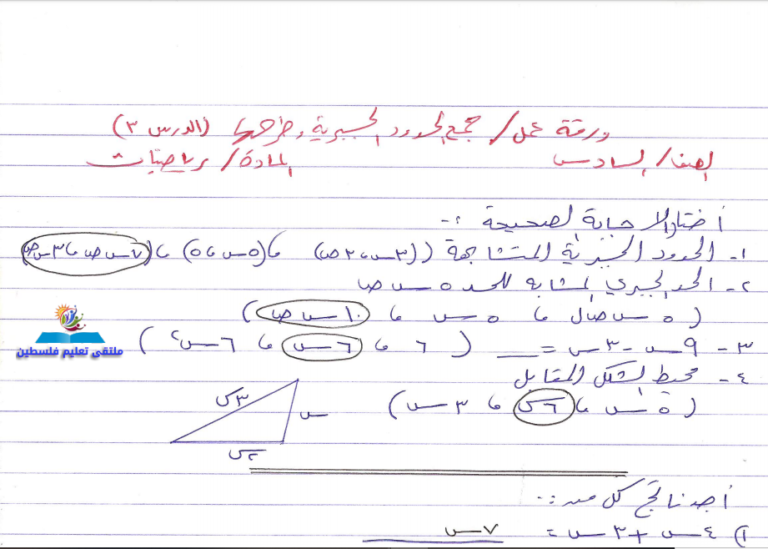 ورقة عمل / جمع الحدود الجبرية وطرحها (الدرس ٣)
الصف / السادس المادة / رياضيات
أختار الاجابة الصحيحة :-
١- الحدود الجبرية المتشابهة ((٣س، ٢ص) ، (٥س، ٥) ، (٧س ص، ٣س ص)
٢- الحد الجبري المشابه للحد ٥ س ص
(٥ س ص ل ، ٥ س ، ١٠ س ص)
٣- ٩س - ٣س = __ (٦ ، ٦س ، ٦س٢)
ملتقى تعليم فلسطين
٤- محيط الشكل المقابل
(٥ س ، ٦س ، ٣س)
٣س
س
٢س
أجد ناتج كل من :-
١) ٤س + ٣س = ٧س